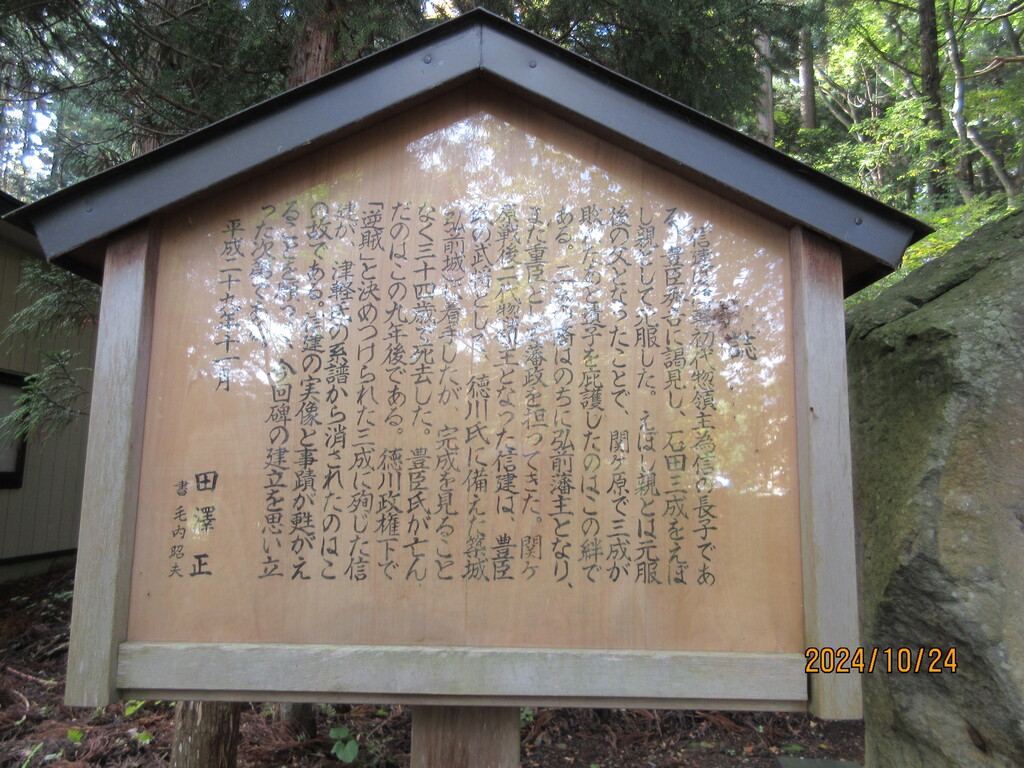 信建は津軽初代惣領主為信の長子であ
る。豊臣秀吉に謁見し、石田三成をえぼ
し親として元服した。えぼし親とは元服
後の父となったことで、関ヶ原で三成が
敗れたあと遺子を庇護したのはこの絆で
ある。はのちに弘前藩主となり、
また重臣として藩政を担ってきた。関ヶ
原戦後二代惣領主となった信建は、豊臣
の武将として、徳川氏に備えた築城
(弘前城)に着手したが、完成を見ること
なく三十四歳で死去した。豊臣氏が亡ん
だのは、この九年後である。徳川政権下で
「逆賊」と決めつけられた三成に殉じた信
建が、津軽氏の系譜から消されたのはこ
の故である。信建の実像と事蹟が甦がえ
ることを願って、今回碑の建立を思い立
った次第である。
平成二十九年十一月
田澤 正
書 毛内昭夫
2024/10/24